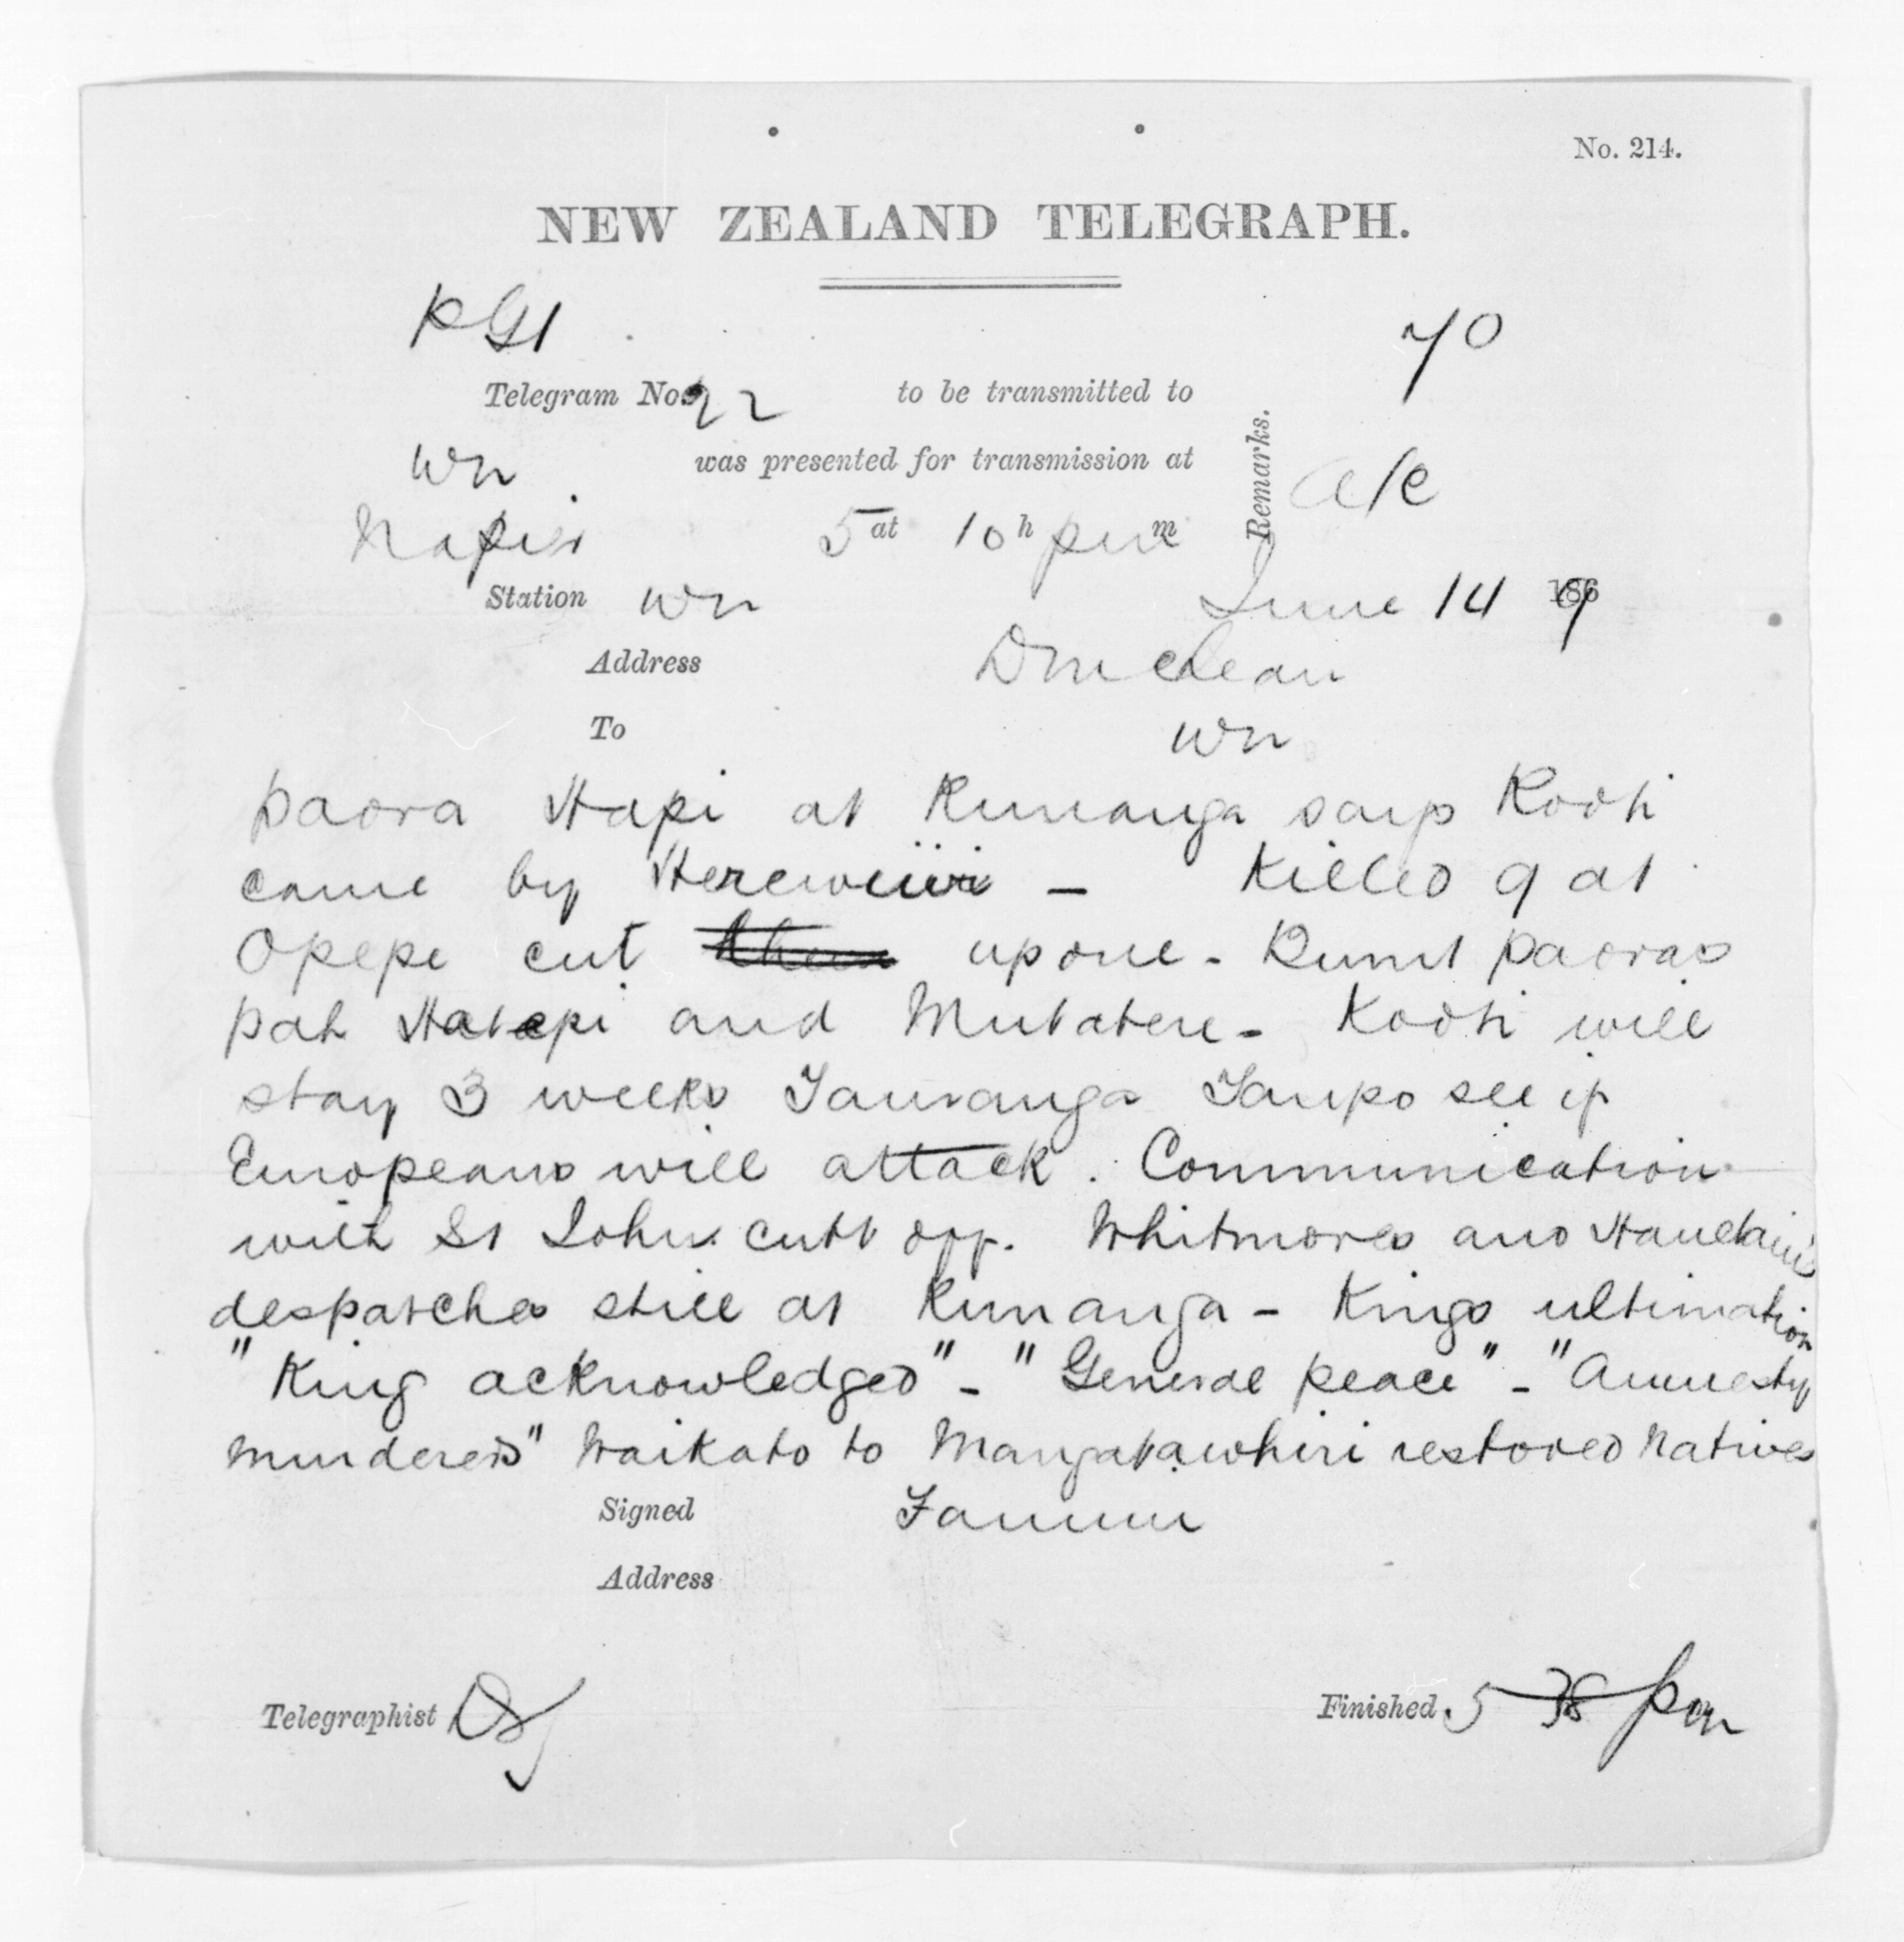 No. 214.
NEW ZEALAND TELEGRAPH.
70
Telegram No. 22 to be transmitted to
Wn was presented for transmission at
Remarks.
Napier 5 at 10 h pm m
Station Wn June 14 1869
Address D McLean
To Wn
Paora Hapi at Runanga says Kooti
came by Herewini - Killed 9 at
Opepe cut up one - Burnt Paoras
pah Hatepi and Mutatere - Kooti will
stay 3 weeks Tauranga Taupo see if
Europeans will attack. Communication
with St John cutt off. Whitmores and Haultains
despatches still at Runanga - Kings ultimation
"King acknowledged" - "General peace" - "Amnesty
murderers" Waikato to Mangatawhiri restored Natives
Signed Fannin
Address
Telegraphist
Finished 5 38 pm